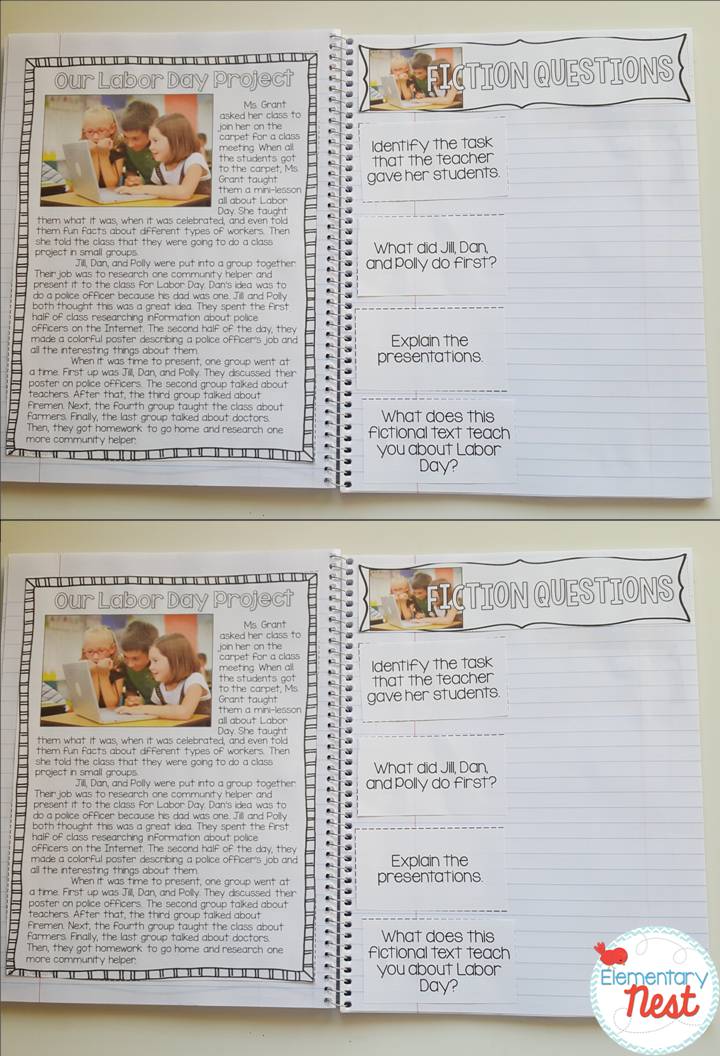 Our Labor Day Project
Ms. Grant
asked her class to
join her on the
carpet for a class
meeting. When all
the students got
to the carpet, Ms.
Grant taught
them a mini-lesson
all about Labor
Day. She taught
them what it was, when it was celebrated, and even told
them fun facts about different types of workers. Then
she told the class that they were going to do a class
project in small groups.
Jill, Dan, and Polly were put into a group together.
Their job was to research one community helper and
present it to the class for Labor Day. Dan's idea was to
do a police officer because his dad was one. Jill and Polly
both thought this was a great idea. They spent the first
half of class researching information about police
officers on the Internet. The second half of the day, they
made a colorful poster describing a police officer's job and
all the interesting things about them.
When it was time to present, one group went at
a time. First up was Jill, Dan, and Polly. They discussed their
poster on police officers. The second group talked about
teachers. After that, the third group talked about
firemen. Next, the fourth group taught the class about
farmers. Finally, the last group talked about doctors.
Then, they got homework to go home and research one
more community helper.
FICTION QUESTIONS
Identify the task
that the teacher
gave her students.
What did Jill, Dan,
and Polly do first?
Explain the
presentations.
What does this
fictional text teach
you about Labor
Day?
Our Labor Day Project
Ms. Grant
asked her class to
join her on the
carpet for a class
meeting. When all
the students got
to the carpet, Ms.
Grant taught
them a mini-lesson
all about Labor
Day. She taught
them what it was, when it was celebrated, and even told
them fun facts about different types of workers. Then
she told the class that they were going to do a class
project in small groups.
Jill, Dan, and Polly were put into a group together.
Their job was to research one community helper and
present it to the class for Labor Day. Dan's idea was to
do a police officer because his dad was one. Jill and Polly
both thought this was a great idea. They spent the first
half of class researching information about police
officers on the Internet. The second half of the day, they
made a colorful poster describing a police officer's job and
all the interesting things about them.
When it was time to present, one group went at
a time. First up was Jill, Dan, and Polly. They discussed their
poster on police officers. The second group talked about
teachers. After that, the third group talked about
firemen. Next, the fourth group taught the class about
farmers. Finally, the last group talked about doctors.
Then, they got homework to go home and research one
more community helper.
FICTION QUESTIONS
Identify the task
that the teacher
gave her students.
What did Jill, Dan,
and Polly do first?
Explain the
presentations.
What does this
fictional text teach
you about Labor
Day?
Elementary
Nest